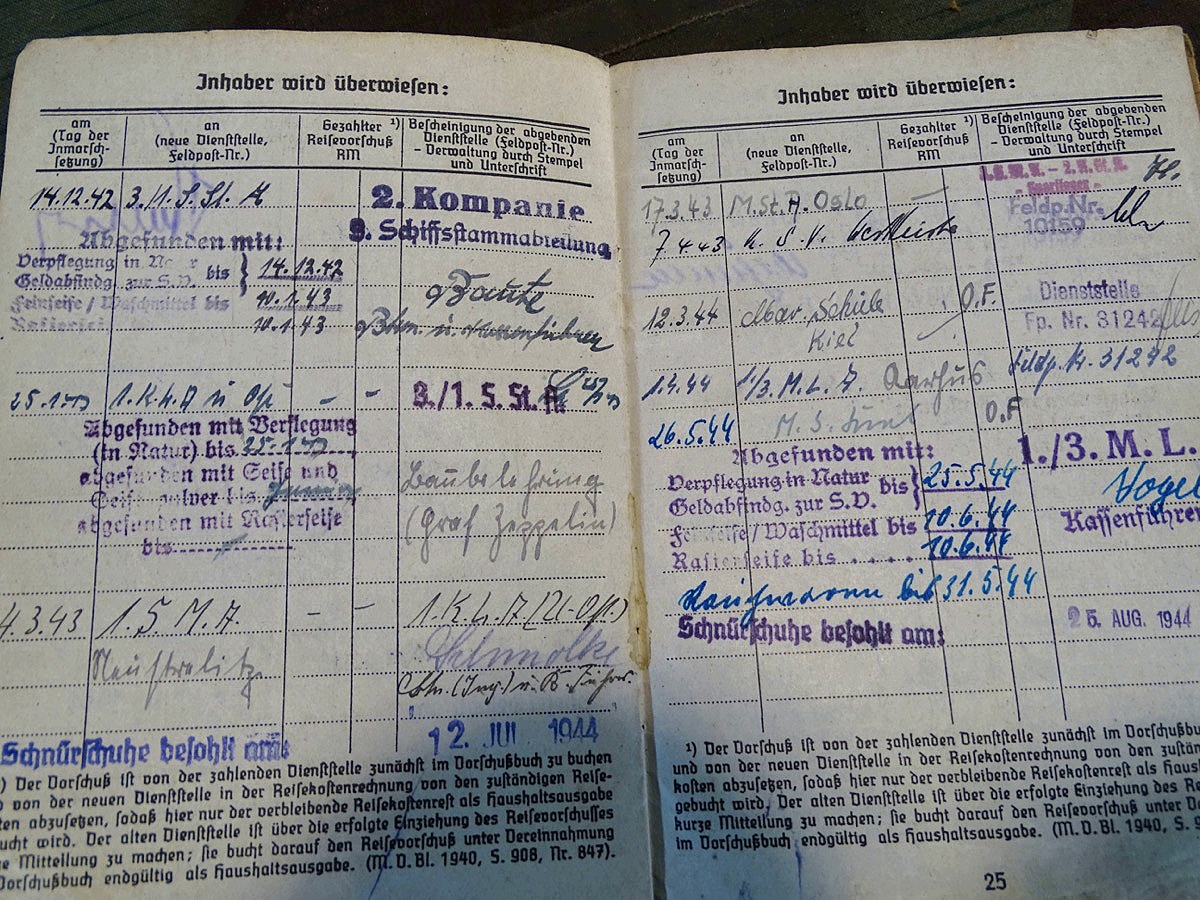 Inhaber wird überwiesen:
am
(Tag der
Inmarsch-
setzung)
an
(neue Dienststelle,
Feldpost-Nr.)
Gezahlter ¹)
Reisevorschuß
RM
Bescheinigung der abgebenden
Dienststelle (Feldpost-Nr.)
- Verwaltung durch Stempel
und Unterschrift
14.12.42 3./1. S. St. A
2. Kompanie
9. Schiffsstammabteilung
Abgefunden mit:
Verpflegung in Natur
Geldabfindg. zur S.V. bis 14.12.42
Feinseife / Waschmittel bis 10.1.43
Rasierseife 10.1.43
25.1.43 1. K.L.A - -
3./1. S. St. A.
Abgefunden mit Verflegung
(in Natur) bis 25.1.43
abgefunden mit Seife und
Seifenpulver bis
abgefunden mit Rasierseife
bis
Baubelehrung
(Graf Zeppelin)
4.3.43 1. S. M. A - - 1. K.L.A (U-Of.)
Neustrelitz
Schmolke
Schnürschuhe besohlt am:
12. JUL 1944
¹) Der Vorschuß ist von der zahlenden Dienststelle zunächst im Vorschußbuch zu buchen
und von der neuen Dienststelle in der Reisekostenrechnung von den zuständigen Reise-
kosten abzusetzen, sodaß hier nur der verbleibende Reisekostenrest als Haushaltsausgabe
gebucht wird. Der alten Dienststelle ist über die erfolgte Einziehung des Reisevorschusses
kurze Mitteilung zu machen; sie bucht darauf den Reisevorschuß unter Vereinnahmung
im Vorschußbuch endgültig als Haushaltsausgabe. (M. D. Bl. 1940, S. 908, Nr. 847).
Inhaber wird überwiesen:
am
(Tag der
Inmarsch-
setzung)
an
(neue Dienststelle,
Feldpost-Nr.)
Gezahlter ¹)
Reisevorschuß
RM
Bescheinigung der abgebenden
Dienststelle (Feldpost-Nr.)
- Verwaltung durch Stempel
und Unterschrift
17.3.43 M.St.A. Oslo
Feldp.Nr.
10159
7 4 43 K. S. V.
12.3.44 Mar. Schule O.F.
Kiel
Dienststelle
Fp. Nr. 31242
1.4.44 1/3. M. L. A. Aarhus Feldp. Nr. 31242
26.5.44 O.F
1./3. M. L.
Abgefunden mit:
Verpflegung in Natur
Geldabfindg. zur S.V. bis 25.5.44
Feinseife / Waschmittel bis 10.6.44
Rasierseife bis 10.6.44
Vogel
Kassenführer
bis 31.5.44
Schnürschuhe besohlt am:
25. AUG. 1944
¹) Der Vorschuß ist von der zahlenden Dienststelle zunächst im Vorschußbu
und von der neuen Dienststelle in der Reisekostenrechnung von den zustän
kosten abzusetzen, sodaß hier nur der verbleibende Reisekostenrest als Haus
gebucht wird. Der alten Dienststelle ist über die erfolgte Einziehung des Re
kurze Mitteilung zu machen; sie bucht darauf den Reisevorschuß unter Ve
im Vorschußbuch endgültig als Haushaltsausgabe. (M. D. Bl. 1940, S. 9
25